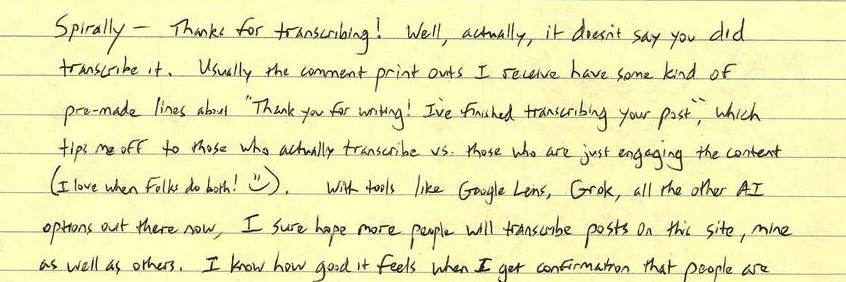 Spirally – Thanks for transcribing! Well, actually, it doesn't say you did
transcribe it. Usually the comment print outs I receive have some kind of
pre-made lines about "Thank you for writing! I've finished transcribing your post", which
tips me off to those who actually transcribe vs. those who are just engaging the content
(I love when folks do both! ☺). With tools like Google Lens, Grok, all the other AI
options out there now, I sure hope more people will transcribe posts on this site, mine
as well as others. I know how good it feels when I get confirmation that people are